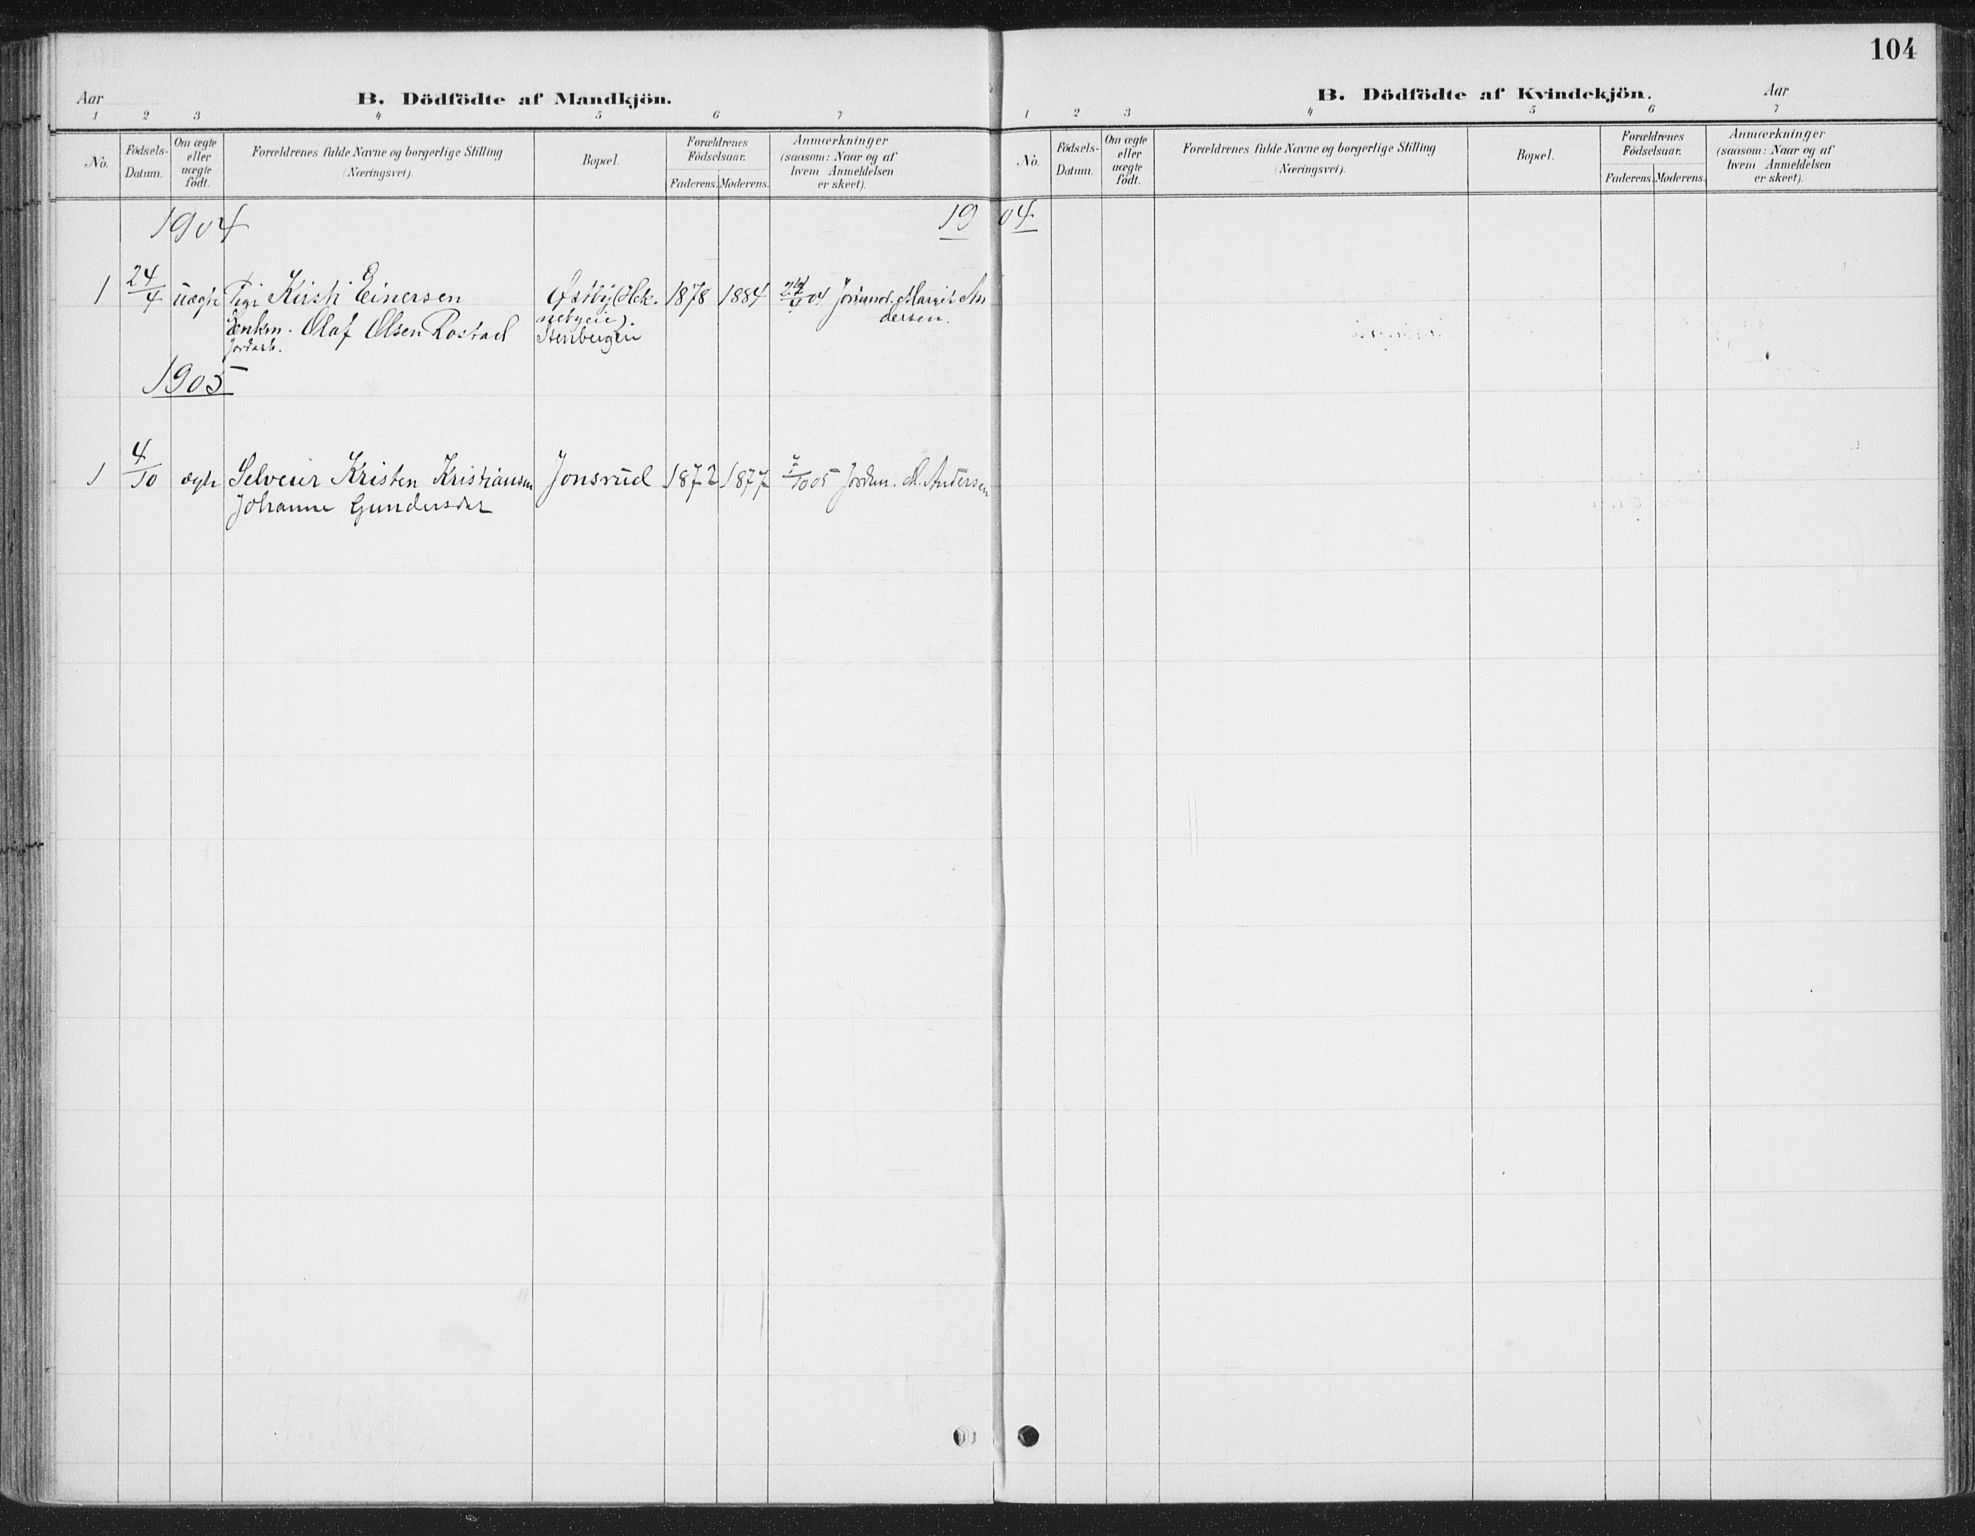 104
Aar
B. Dödfödte af Mandkjön.
1 2 3 4 5 6 7
No.
Födsels-Datum.
Om ægte eller uægte födt.
Forældrenes fulde Navne og borgerlige Stilling
(Næringsvei).
Bopæl.
Forældrenes Födselsaar.
Faderens. Moderens.
Anmærkninger
(saasom: Naar og af
hvem Anmeldelsen
er skeet).
1904
1 24/4 uægte Pige Kirsti Einersen Østby 1878 1884 04 Margit An
dersen.
Olaf Olsen Rostad Stenbergeie
1905
1 4/10 ægte Selveier Kristen Kristiansen Jonsrud 1872 1877 /10 05 Jordm. M. Andersen
Johanne Gundersdat
B. Dödfödte af Kvindekjön.
Aar
1 2 3 4 5 6 7
No.
Födsels-
Datum.
Om ægte
eller
uægte
födt.
Forældrenes fulde Navne og borgerlige Stilling
(Næringsvei).
Bopæl.
Forældrenes
Födselsaar.
Faderens. Moderens.
Anmærkninger
(saasom: Naar og af
hvem Anmeldelsen
er skeet).
1904